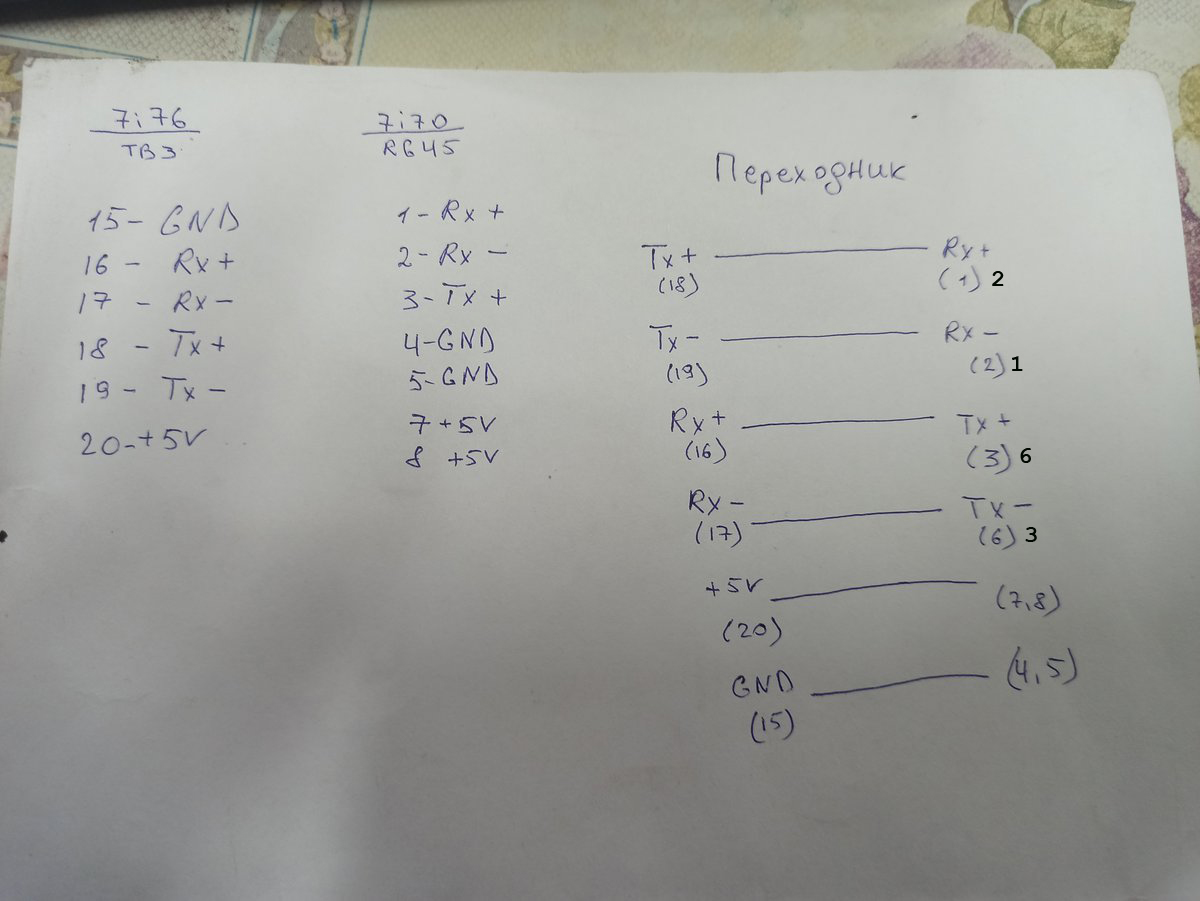 7i76
TB3
15 - GND
16 - Rx+
17 - Rx-
18 - Tx+
19 - Tx-
20 - +5V
7i70
RG45
1 - Rx +
2 - Rx -
3 - Tx +
4 - GND
5 - GND
7 +5V
8 +5V
Переходник
Tx+ Rx+
(18) (1) 2
Tx- Rx-
(19) (2) 1
Rx+ Tx+
(16) (3) 6
Rx- Tx-
(17) (6) 3
+5V (7,8)
(20)
GND (4,5)
(15)